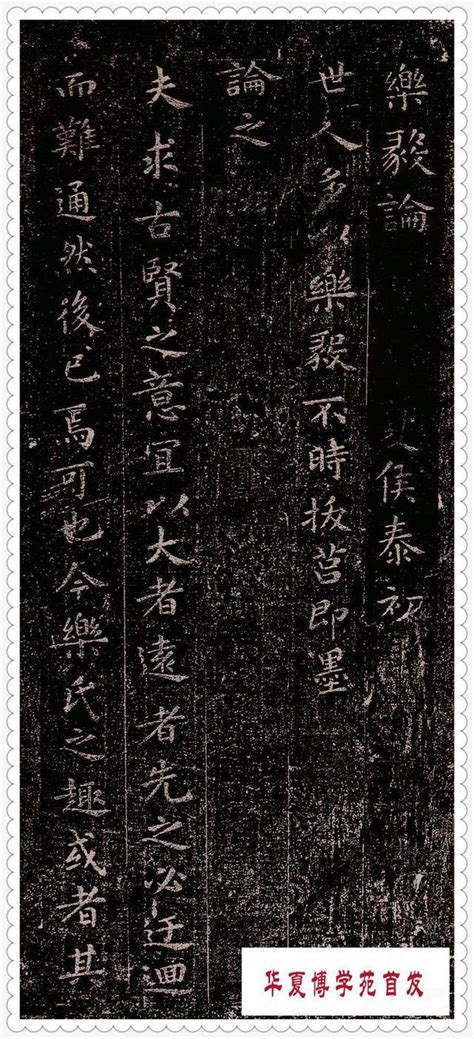 樂毅論 夏侯泰初
世人多以樂毅不時拔莒即墨
論之
夫求古賢之意宜以大者遠者先之必迂迴
而難通然後已焉可也今樂氏之趣或者其
华夏博学苑首发